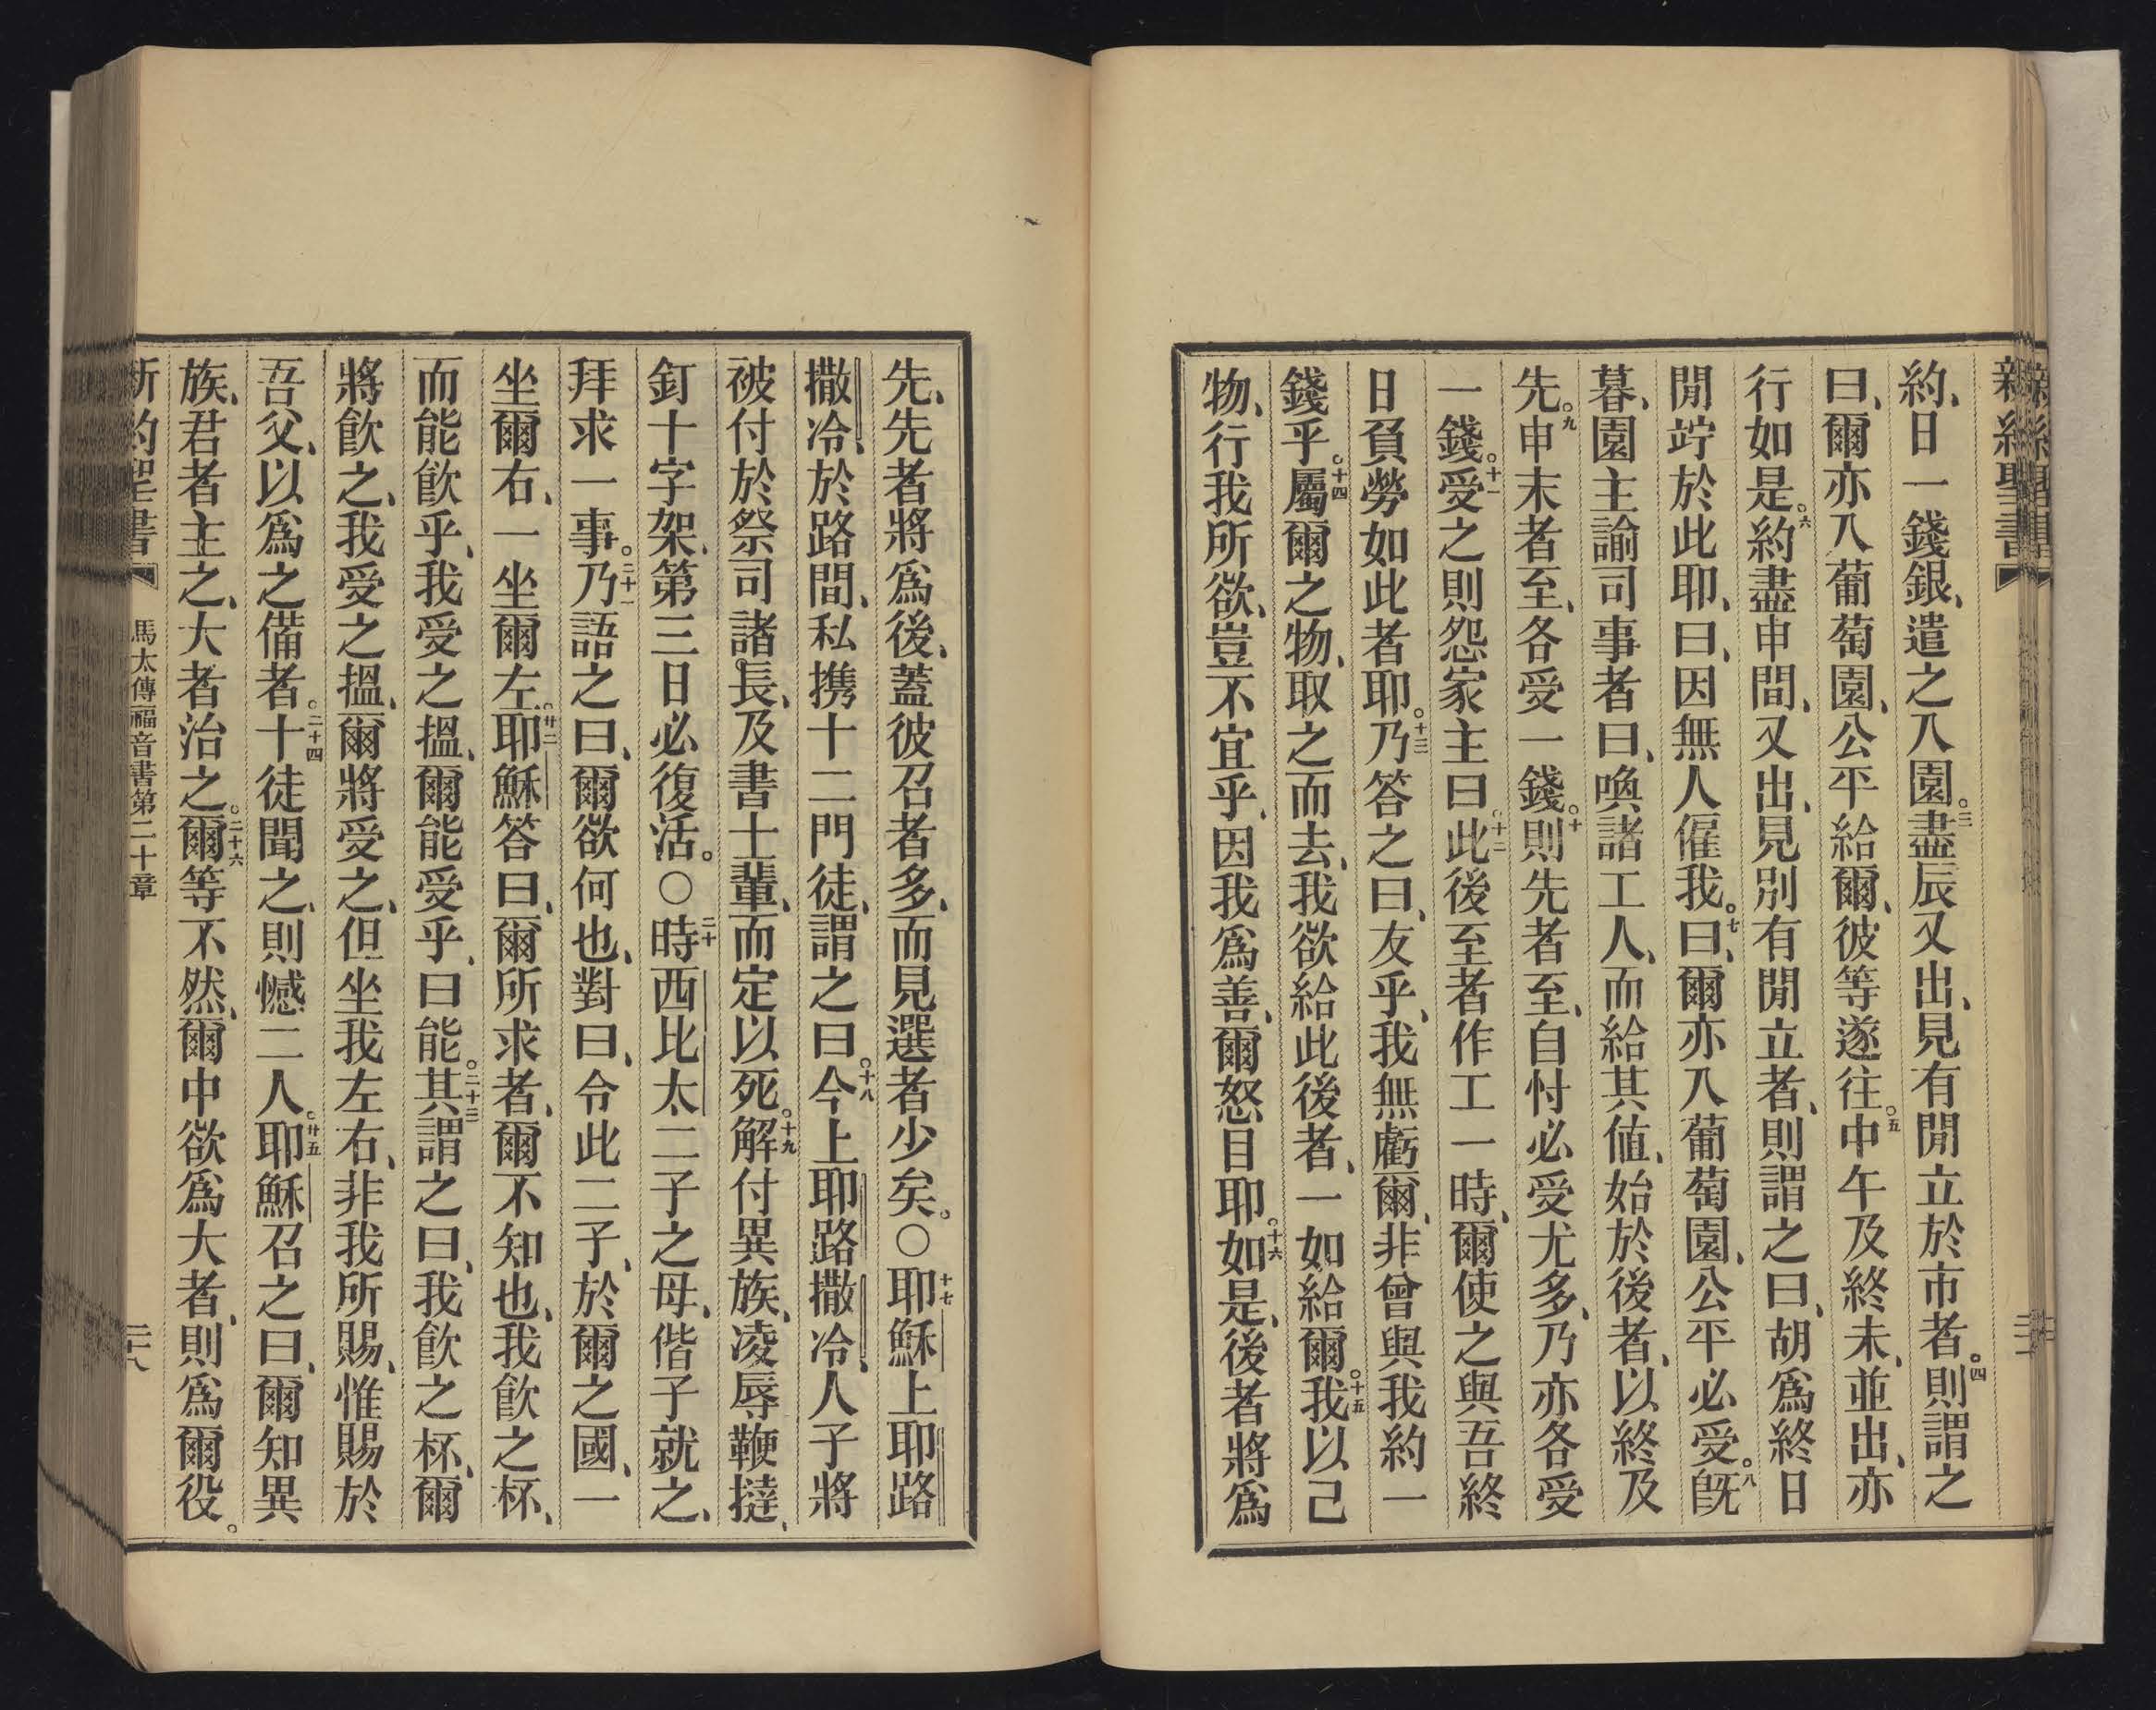 新約聖書
約、日一錢銀、遣之入園。三盡辰又出、見有閒立於市者。四則謂之
曰、爾亦入葡萄園、公平給爾、彼等遂往。五中午及終未、並出、亦
行如是。六約盡申間、又出、見別有閒立者、則謂之曰、胡爲終日
閒竚於此耶、曰、因無人僱我。七曰、爾亦入葡萄園、公平必受。八旣
暮、園主諭司事者曰、喚諸工人、而給其値、始於後者、以終及
先。九申末者至、各受一錢。十則先者至、自忖必受尤多、乃亦各受
一錢。十一受之則怨家主曰。十二此後至者作工一時、爾使之與吾終
日負勞如此者耶。十三乃答之曰、友乎、我無虧爾、非曾與我約一
錢乎。十四屬爾之物、取之而去、我欲給此後者、一如給爾。十五我以己
物、行我所欲、豈不宜乎、因我爲善、爾怒目耶。十六如是、後者將爲
先、先者將爲後、蓋彼召者多、而見選者少矣。○十七耶穌上耶路
撒冷、於路間、私携十二門徒、謂之曰。十八今上耶路撒冷、人子將
被付於祭司諸長、及書士輩、而定以死。十九解付異族、凌辱鞭撻、
釘十字架、第三日必復活。○二十時西比太二子之母、偕子就之、
拜求一事。二十一乃語之曰、爾欲何也、對曰、令此二子、於爾之國、一
坐爾右、一坐爾左。廿二耶穌答曰、爾所求者、爾不知也、我飮之杯、
而能飮乎、我受之搵、爾能受乎、曰能。二十三其謂之曰、我飮之杯、爾
將飮之、我受之搵、爾將受之、但坐我左右、非我所賜、惟賜於
吾父、以爲之備者。二十四十徒聞之、則憾二人。廿五耶穌召之曰、爾知異
族、君者主之、大者治之。二十六爾等不然、爾中欲爲大者、則爲爾役。
新約聖書 馬太傳福音書第二十章 二八